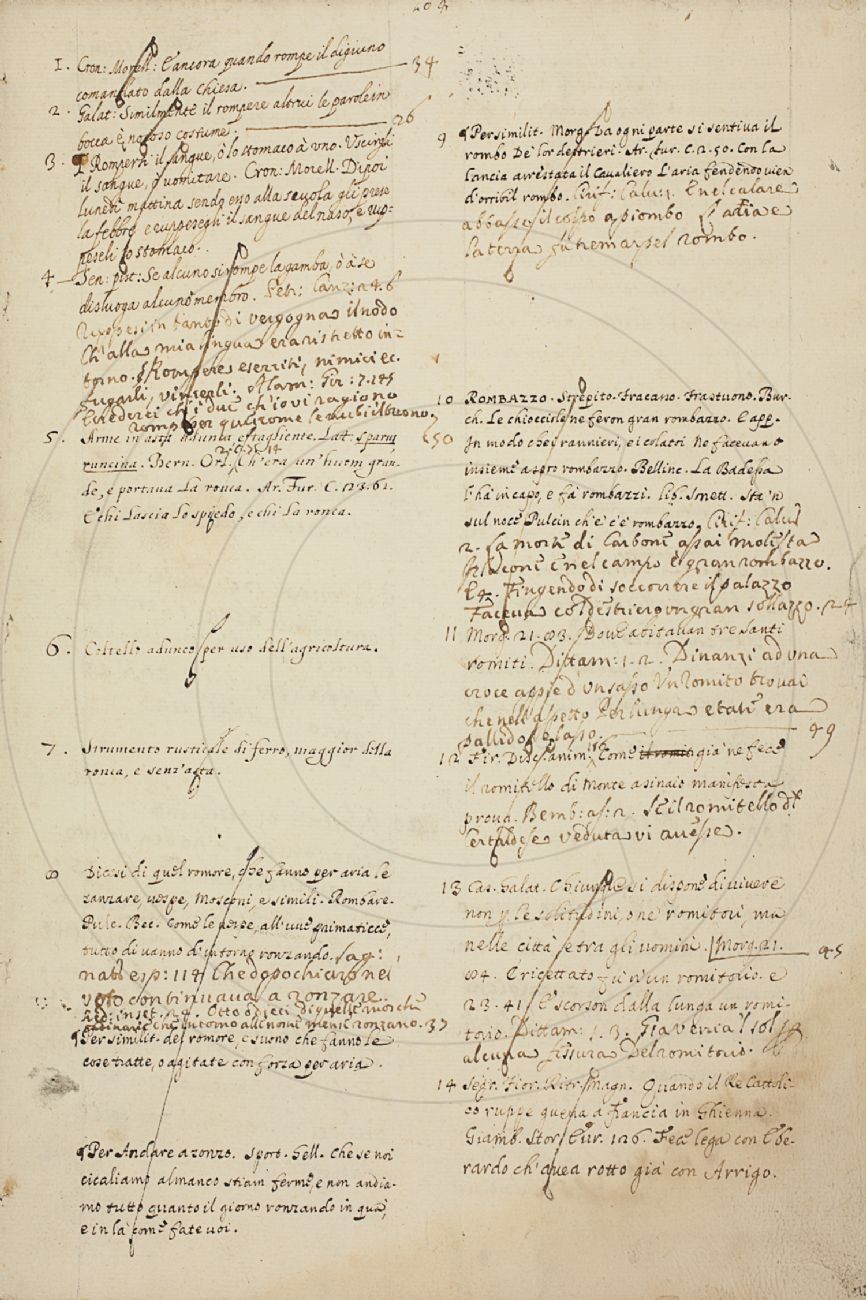 1. Cron: Morell: E ancora quando rompe il digiuno
comandato dalla chiesa. 34
2. Galat: Similmente il rompere altrui le parole in
bocca è noioso costume; 26
3. ¶ Romperti il sangue, ò lo stomaco à uno. Uscirgli
il sangue, ò vomitare. Cron: Morell. Dipoi
lunedì mattina sendo esso alla scuola gli prese
la febbre e ruppesegli il sangue del naso, e rup-
peseli lo stomaco.
4. Sen: pist: Se alcuno si rompe la gamba, ò à se
disluoga alcuno membro. Petr: Canz: 24. 6
Ruppesi in tanto di vergogna il nodo
Ch' alla mia lingua era ristretto in-
torno. ¶ Rompere eserciti, nimici ec.
fugarli, vincerli. Alam: Gir: 7. 145
5. Arme in asta adunca, e tagliente. Lat: sparus 50
runcina. Bern. Orl. Ch'era un' huom gran-
de, e portava la ronca. Ar. Fur. C. 123. 62.
E chi lascia lo spiedo, e chi la ronca.
6. Coltello adunco per uso dell'agricoltura.
7. Strumento rusticale di ferro, maggior della
ronca, e senz'asta.
8 Dicesi di quel romore, che fanno per aria le
zanzare, vespe, Mosconi, e simili. Rombare.
Pulc. Bec. Come le pecchie, all'uve primaticce,
tutto di vanno d'intorno ronzando. Sag:
nat: esp: 114 Che dopo chiaro nel
voto continuava a ronzare.
Red: inset: Otto o dieci di quelle mosche
ordinarie che intorno alle nostre mense ronzano. 37
¶ Per similit. del romore, e suono che fanno le
cose tratte, o agitate con forza per aria.
¶ Per Andare a ronzo. Sport. Gell. Che se noi
cicaliamo almanco stiam fermi, e non andia-
mo tutto quanto il giorno ronzando in quà,
e in là come fate voi.
9 ¶ Per similit. Morg. Da ogni parte si sentiva il
rombo De' lor destrieri. Ar. Fur. C. 2. 50. Con la
lancia arrestata il Cavaliero L'aria fendendo vien
d'orribil rombo. E nel calare
abbassò il colpo a piombo E l'aria e
la terra fa tremar pel rombo.
10 ROMBAZZO. Strepito. Fracasso. Frastuono. Bur-
ch. Le chiocciole ne feron gran rombazzo. E app.
In modo che i rannieri, e i colatoi Ne facevano
insieme aspro rombazzo. Bellinc. La Badessa
l'ha in capo, e fa rombazzi. Lib. Sonett. Sta 'n
sul noce Pulcin ch'e' c'è rombazzo.
2. La morte di Carbone assai molesta
E nel campo è gran rombazzo.
Fingendo di soccorrere il palazzo
Faceva col destrier un gran sollazzo. 24
11 Morg. 21. 83. Dove abitavan tre santi
romiti. Dittam: 1. 2. Dinanzi ad una
croce appiè d'un sasso Un Romito trovai
che nell'aspetto Per lunga etate era
pallido e lasso. 49
12 Fir. Disc. anim: Come già ne fece
il romitello di Monte asinaio manifesta
prova. Bemb: as: 2. Se il romitello del
Certaldese veduta vi avesse.
13 Cas. Galat. Chiunque si dispone di vivere
non p le solitudini, o ne' romitorj, ma
nelle città, e tra gli uomini. Morg. 21. 45
84. E ricettato fu 'n un romitorio. e
23. 41 E scorson dalla lunga un romi-
torio. Dittam: 1. 3. Già venia 'l sol
alcuna fessura Del romitorio.
14 Segr. Fior. Ritr. Magn. Quando il Re Cattoli-
co ruppe guerra a Francia in Ghienna.
Giamb. Stor. Eur. 126. Fece lega con Ebe-
rardo ch'avea rotto già con Arrigo.